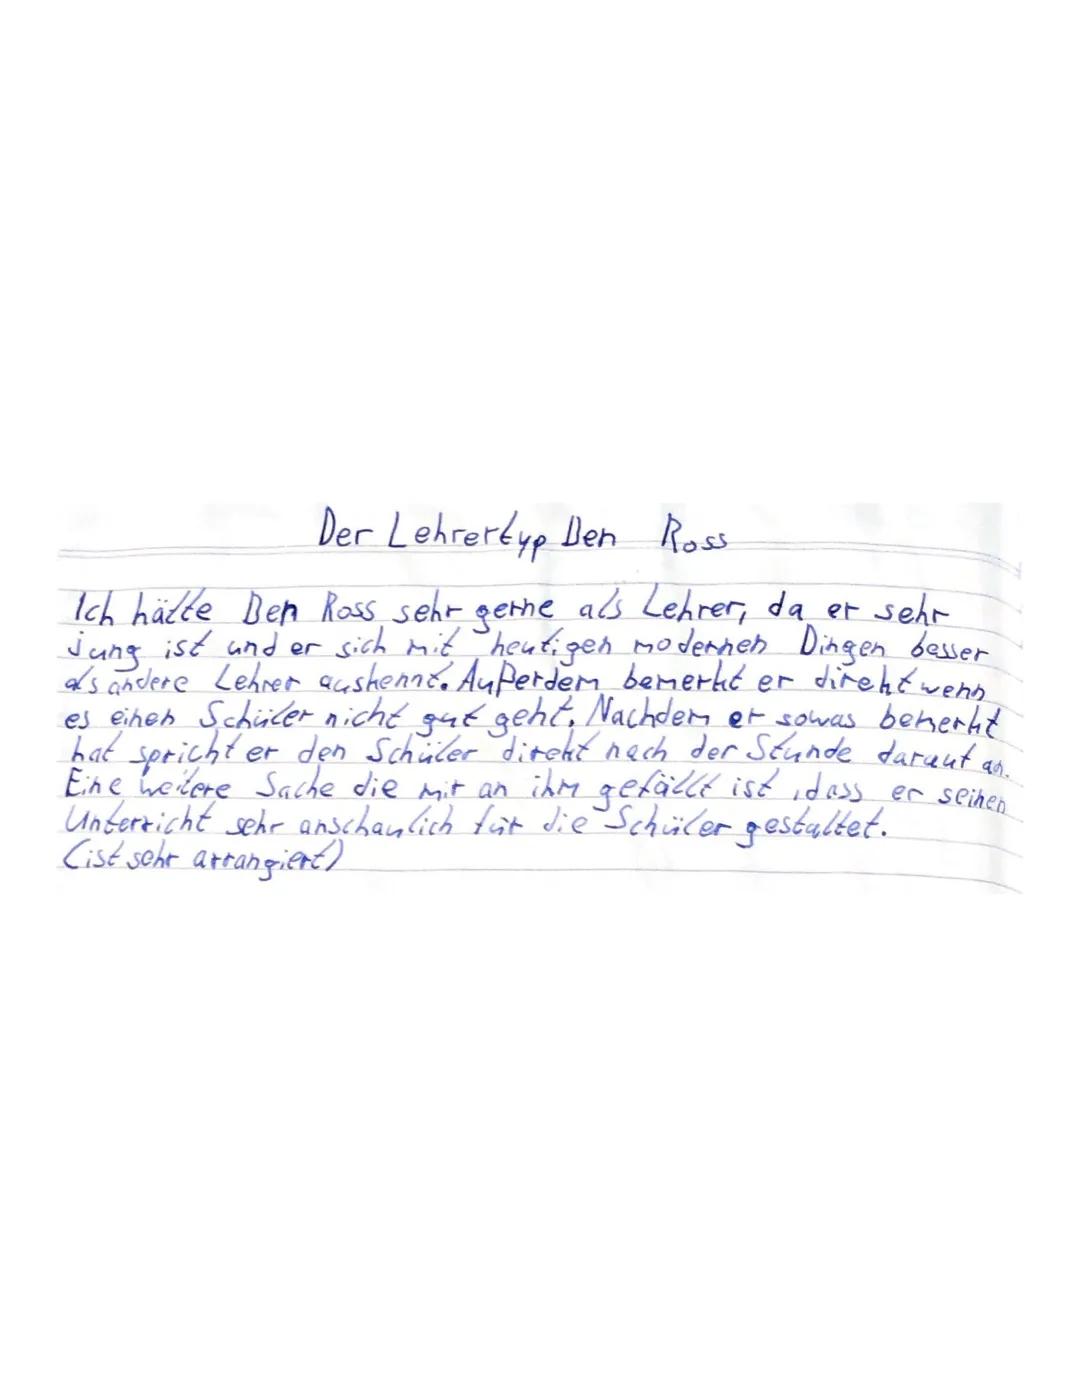 Der Lehrertyp Ben Ross
Ich hätte Ben Ross sehr gerne als Lehrer, da er sehr
jung ist und er sich mit heutigen modernen Dingen besser
als andere Lehrer auskennt. Außerdem bemerkt er direkt wenn
es einen Schüler nicht gut geht. Nachdem er sowas bemerkt
hat spricht er den Schüler direkt nach der Stunde darauf an.
Eine weitere Sache die mir an ihm gefällt ist, dass er seinen
Unterricht sehr anschaulich für die Schüler gestaltet.
(ist sehr arrangiert)